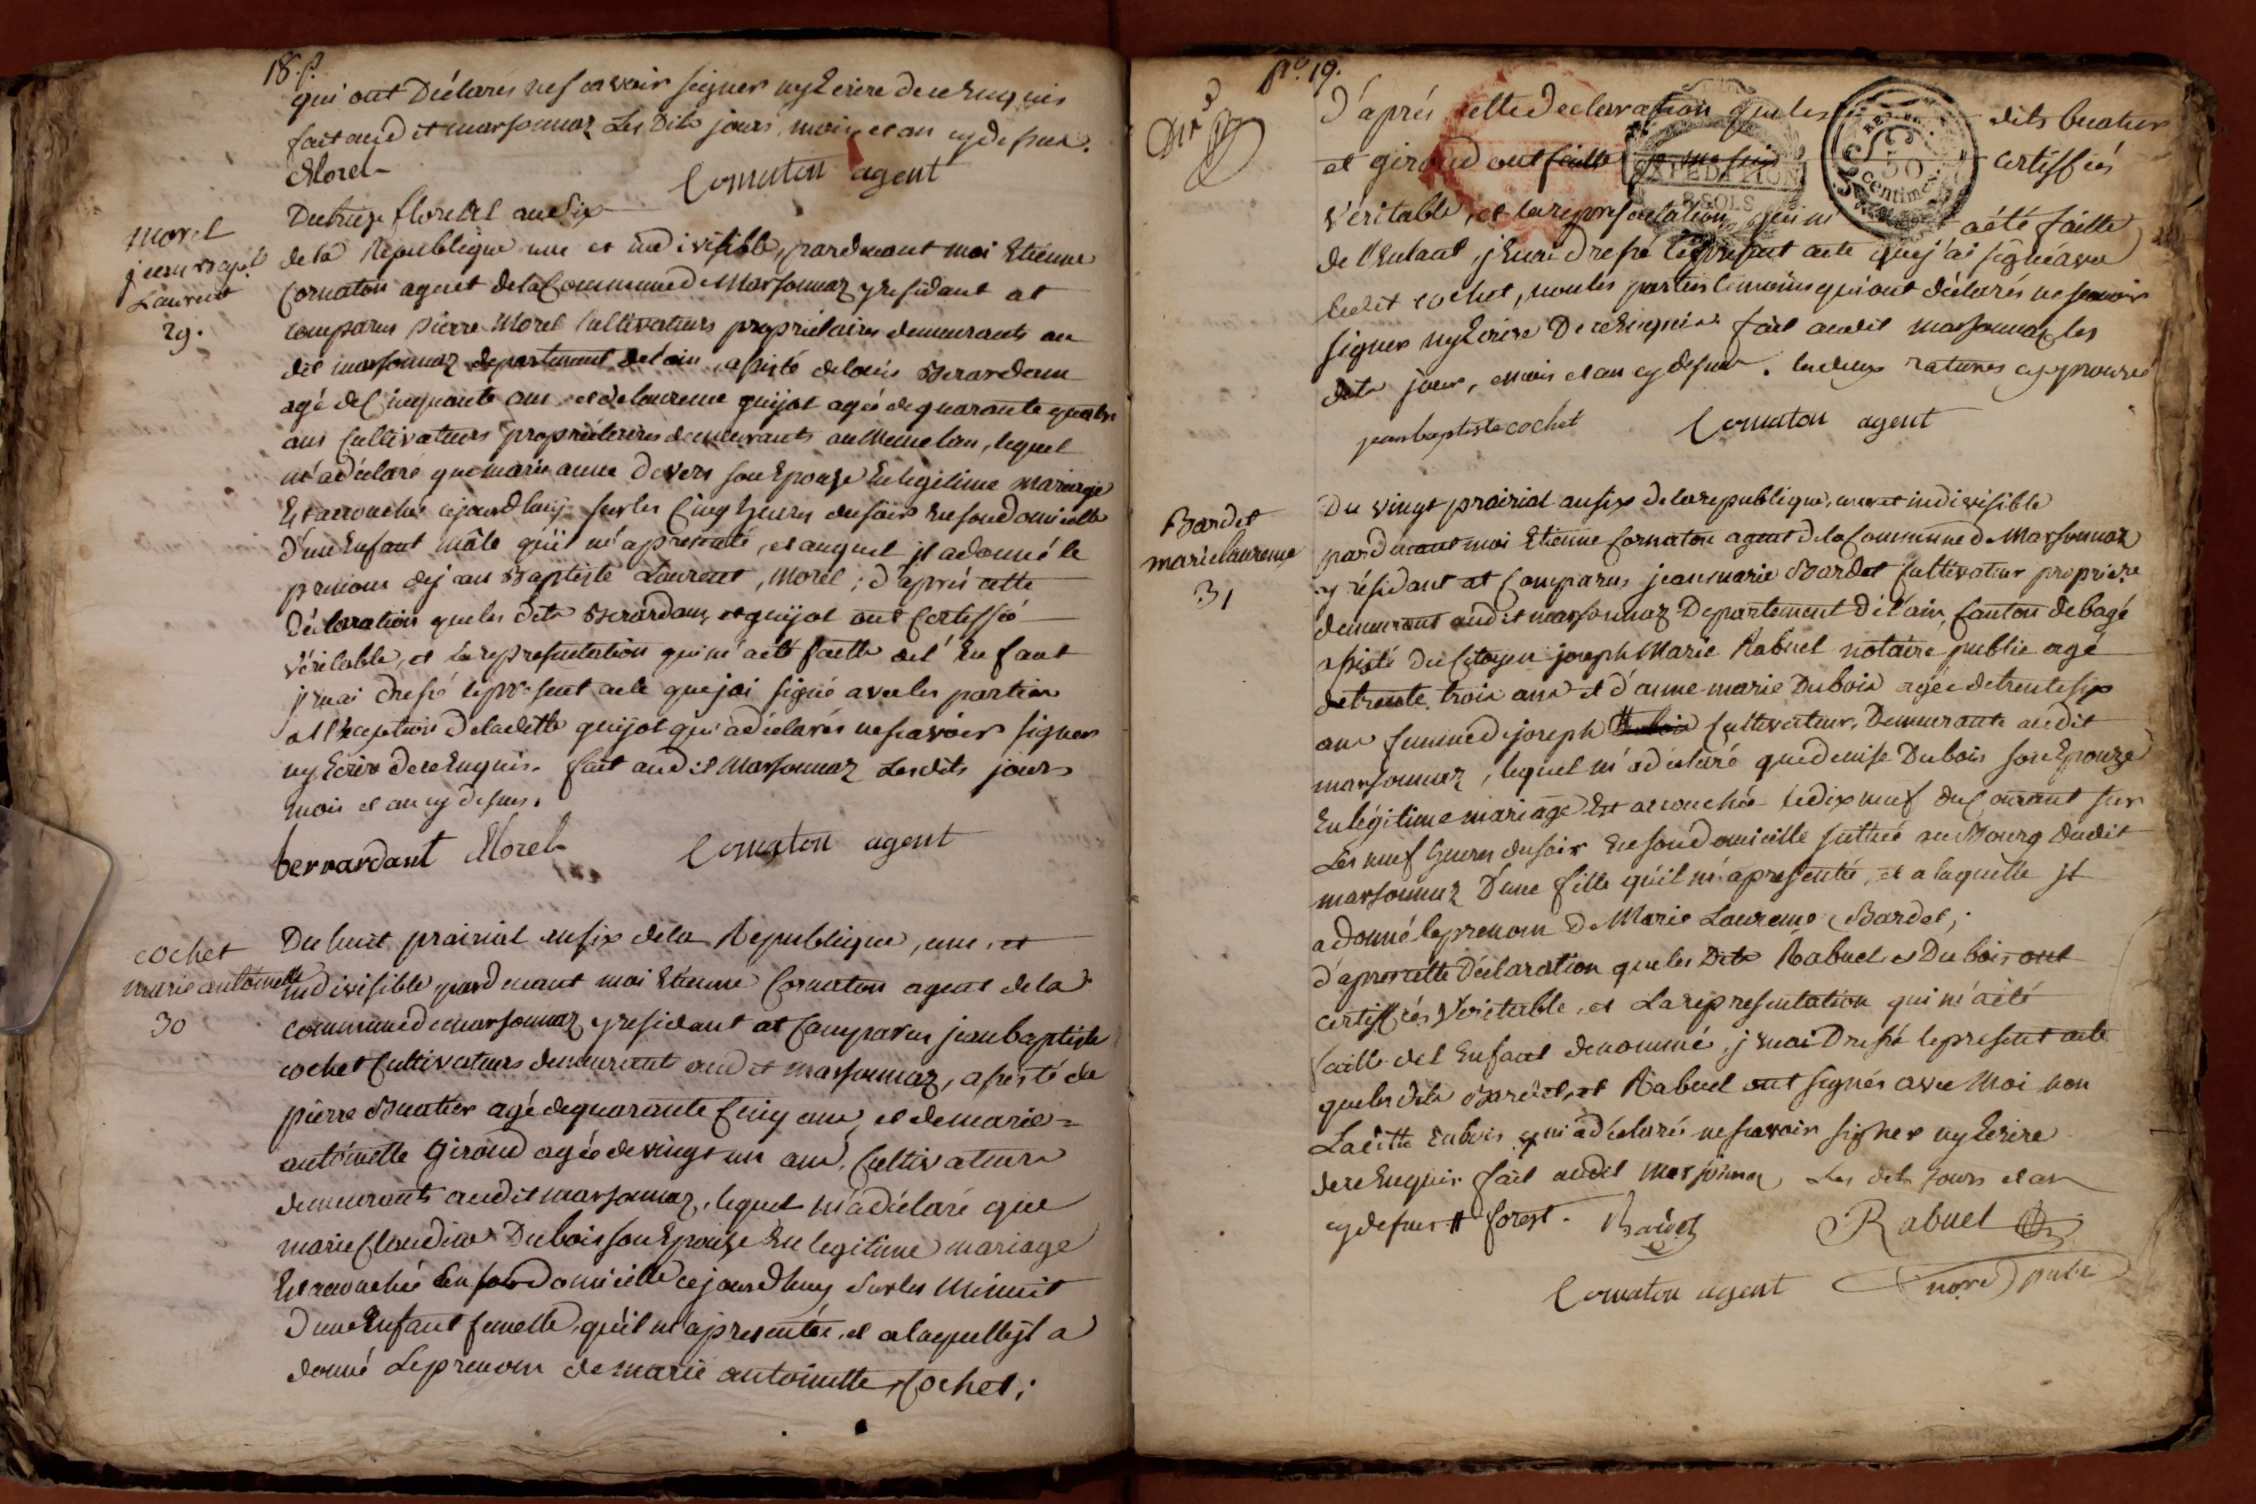 18. p.
qui ont Déclarés ne scavoir signer ny Ecrire de ce Enquis
fait audit marsonnaz Les Dits jours, mois et an cy dessus.
Morel
Cornaton agent
morel
jean Bapt.
Laurent
29.
Du treize floreal an Six
de la Republique une et indivisible, pardevant moi Etienne
Cornaton agent de la Commune de Marsonnaz y residant at
comparus pierre Morel Cultivateurs propriétaires demeurants au
dit marsonnaz departement de l'ain, assisté de
agé de Cinquante ans et de Laurence guijot agée de quarante quatre
ans Cultivateurs propriétaires demeurants au Meme lieu, lequel
m'a déclaré que marie anne devers son Epouze En legitime mariage
Est accouchée cejourdhuy sur les Cinq heures du soir En son domicille
d'une Enfant mâle qu'il m'a presenté, et auquel jl a donné le
prenom de jean Baptiste Laurent, Morel; d'après cette
Déclaration que les dits Berardan et guijot ont Certiffié
Véritable, et la representation qui m'a été faitte de l'Enfant
j'En ai dressé le present acte que jai signé avec les parties
a l'Exception de laditte guijot qui a déclarés ne scavoir signer
ny Ecrire de ce Enquis. fait audit Marsonnaz Lesdits jours
mois et an cy dessus.
berrardant Morel Cornaton agent
cochet
marie antoinette
30
Du huit prairial an six de la Republique, une et
indivisible pardevant moi Etienne Cornaton agent de la
commune de marsonnaz y residant at Comparus jean baptiste
cochet Cultivateurs demeurants audit marsonnaz, assisté de
pierre Buatier agé de quarante Cinq ans, et de marie=
antoinette Giroud agée de vingt un ans, Cultivateurs
demeurants audit marsonnaz, lequel m'a déclaré que
marie Claudine Dubois son Epouze En legitime mariage
Est accouchée En son Domicille cejourdhuy sur les Minuit
d'une Enfant femelle, qu'il m'a presentée, et a laquelle jl a
donné Le prenom de marie antoinette, Cochet;
po. 19.
D'aprés cette declaration que les dits buatier
et giroud ont certiffiés
Véritable, et la representation qui m' a été faitte
de l'Enfant, j'En ai dressé le present acte que j'ai signé avec
ledit cochet, non les parties temoins qui ont déclarés ne scavoir
signer ny Ecrire De ce Enquis. fait audit marsonnaz les
dits jour, mois et an cy dessus. les deux ratures approuvé
jean baptiste cochet Cornaton agent
EXPEDITION
8 SOLS
50
centimes
Bardet
marie laurence
31
Du vingt prairial an six de la republique, une et indivisible
pardevant moi Etienne Cornaton agent de la Commune de Marsonnaz
y résidant at Comparus, jean marie Bardet Cultivateur propriere
demeurant audit marsonnaz Departement de l'ain, Canton de bagé
assisté du Citoyen joseph Marie Rabuel notaire public agé
de trente trois ans et d'anne marie Dubois agée de trente six
ans femme de joseph # Cultivateur, Demeurante audit
marsonnaz, lequel m'a déclaré que denise Dubois son Epouze
En légitime mariage Est accouchée le dix neuf du Courant sur
Les neuf heures du soir En son domicille scitué au Bourg dudit
marsonnaz D'une fille qu'il m'a presenté, et a laquelle jl
a donné le prenom De Marie Laurence Bardet;
d'apres cette Déclaration que les Dits Rabuel et Dubois ont
certiffiés Véritable, et La representation qui m'a été
faitte de l'Enfant denommé, j'En ai Dressé le present acte
que les dits Bardet, et Rabuel ont signés avec Moi non
Laditte Dubois qui a déclaré ne scavoir signer ny Ecrire
de ce Enquis fait audit Marsonna Les dits Jours et an
cy dessus # forest. Bardet Rabuel
Cornaton agent nore publi